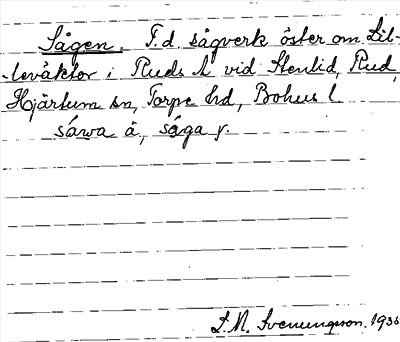 Sågen. F.d. sågverk öster om Lil-
-leväktor i Ruds h vid Stenlid, Rud,
Hjärtum sn, Torpe hd, Bohus l.
såwa å, såga y.
L.M. Svenungsson. 1935